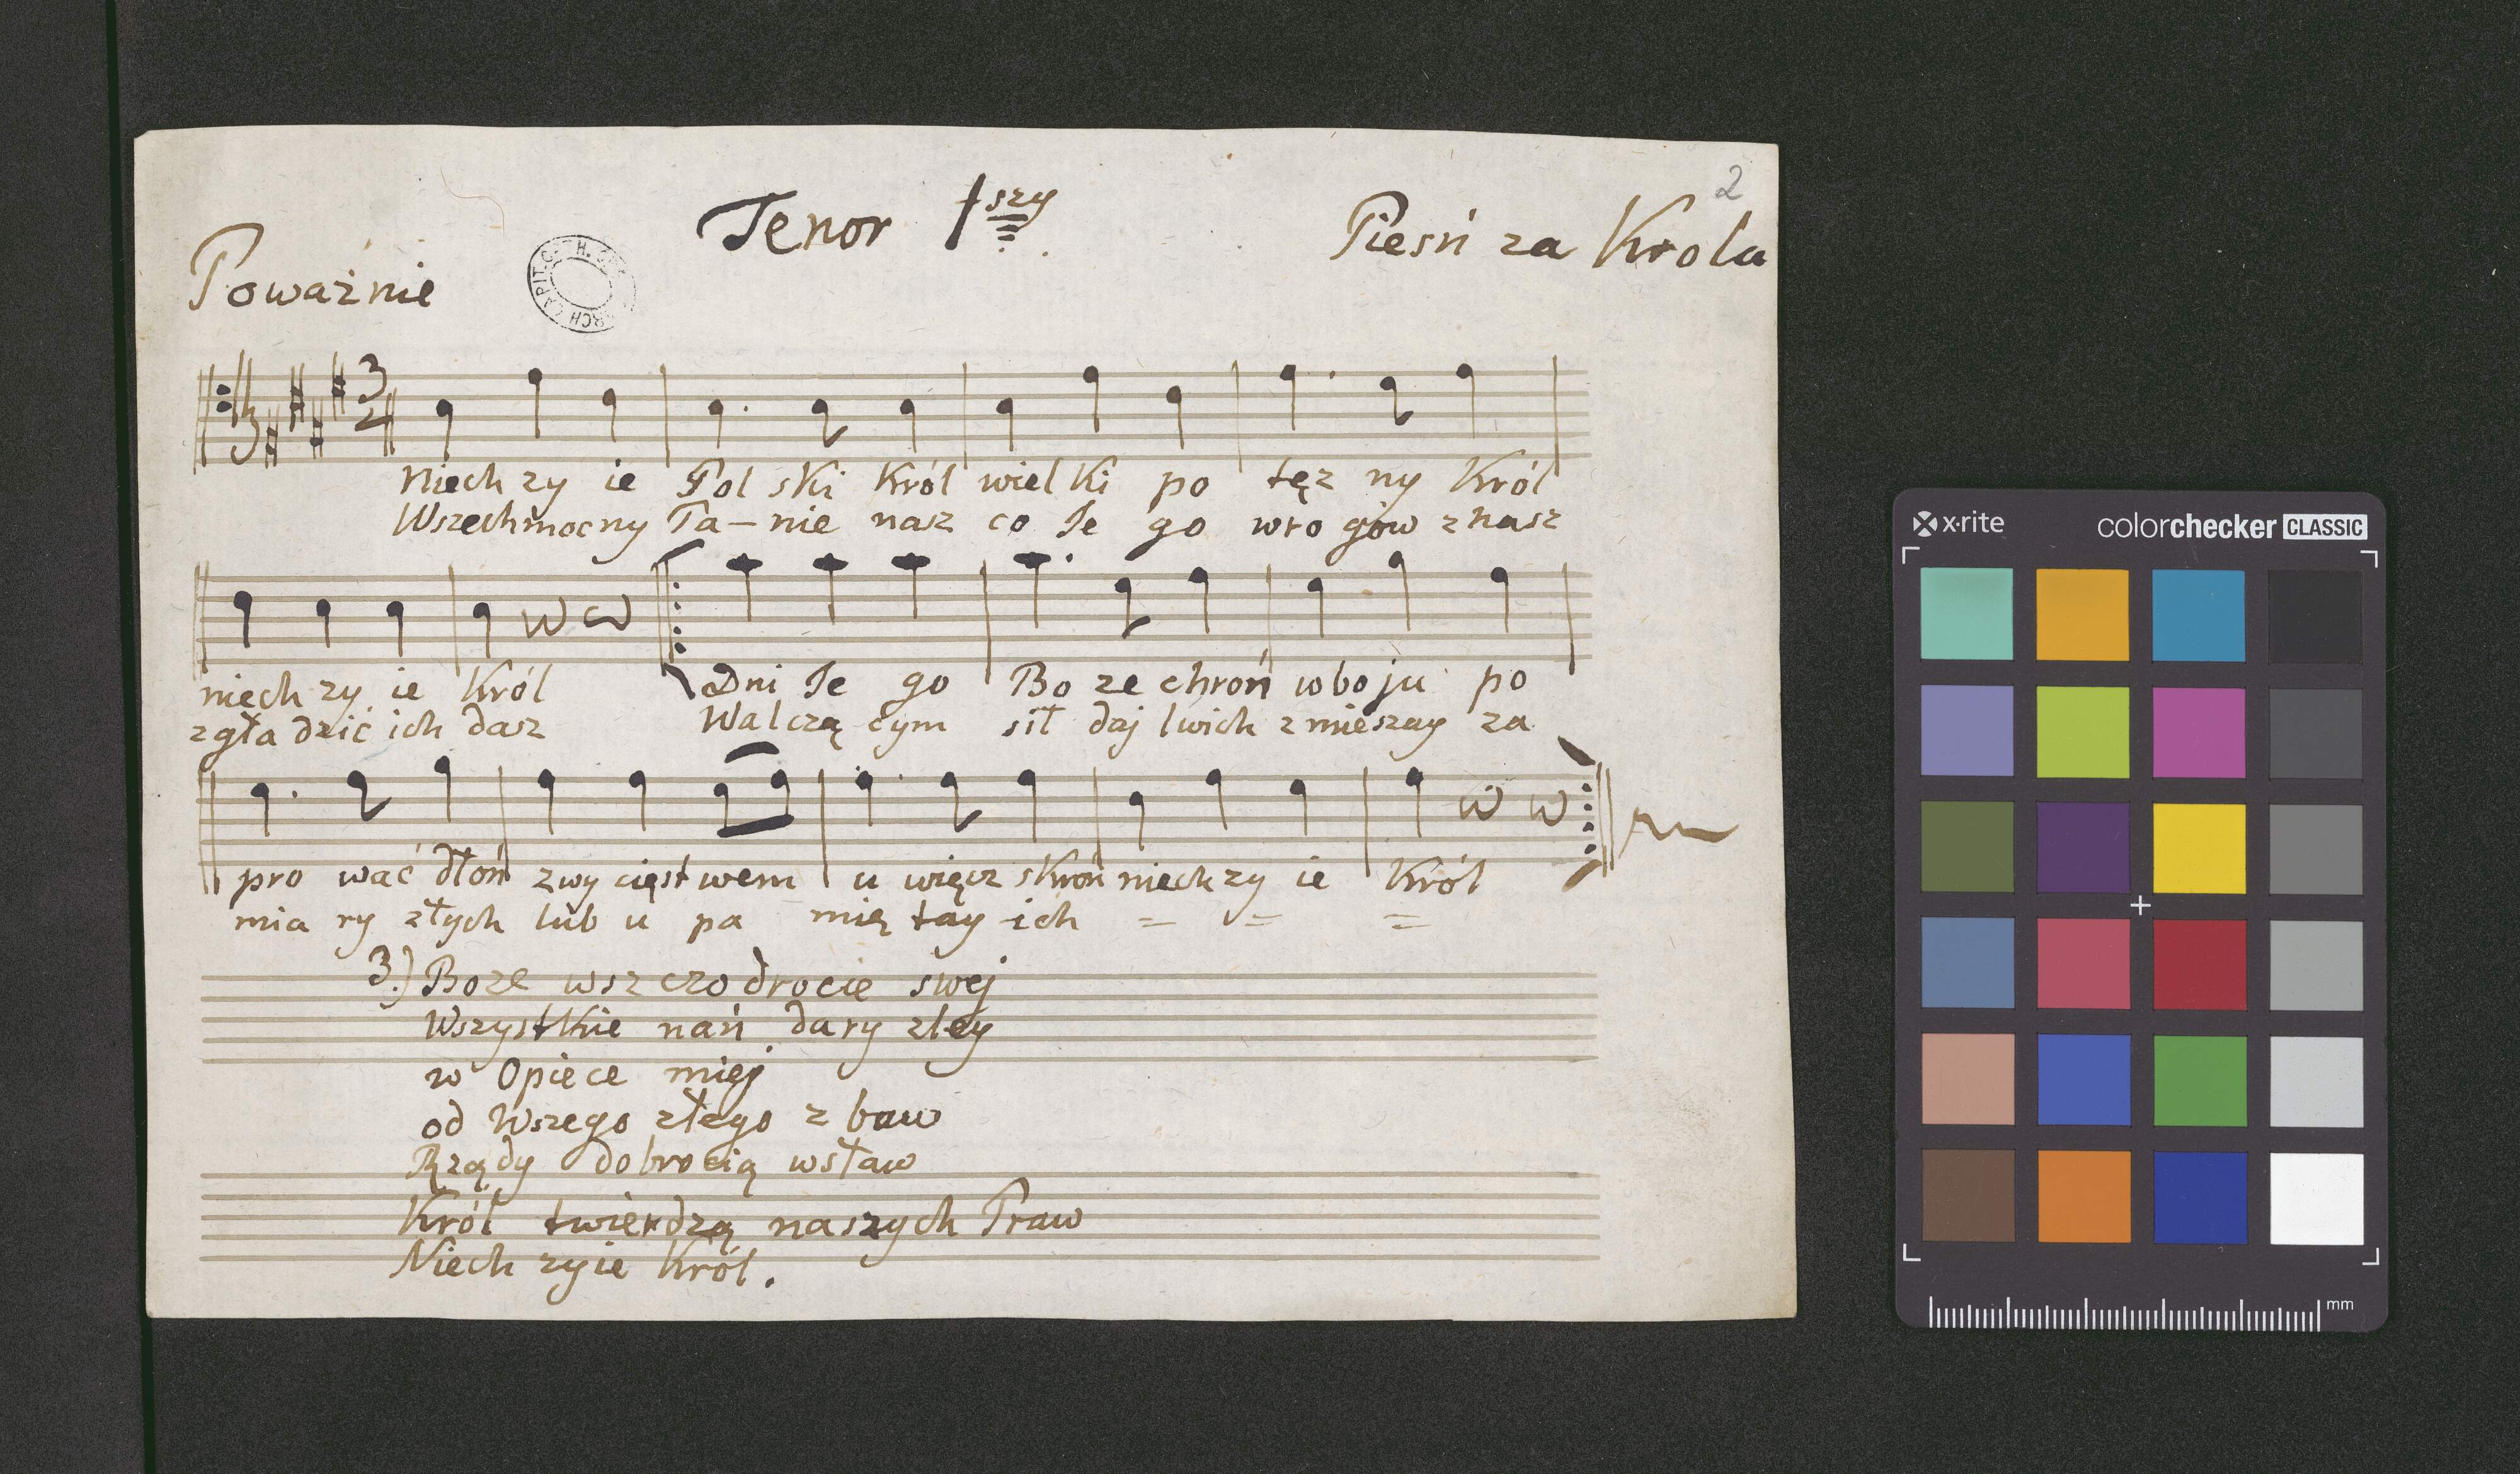 2
Tenor 1szy
Pieśń za Krola
Poważnie
3
4
Niech zy ie Pol ski Król wiel ki po tęz ny Król
Wszechmocny Pa-nie nasz co Je go wro gów znasz
niech zy ie Król Dni Je go Bo ze chroń wbo ju po
zgła dzić ich dasz Walczą cym sił daj lwich zmieszay za
pro wać dłoń zwy cięst wem u więcz skroń niech zy ie Król
mia ry złych lub u pa mię tay ich = = =
3.) Boze wszczodrocie swej
Wszystkie nań dary zley
w Opiece miej
od Wszego złego zbaw
Rządy dobrocią wsław
Król twierdzą naszych Praw
Niech zyie Król.
x·rite colorchecker CLASSIC
mm